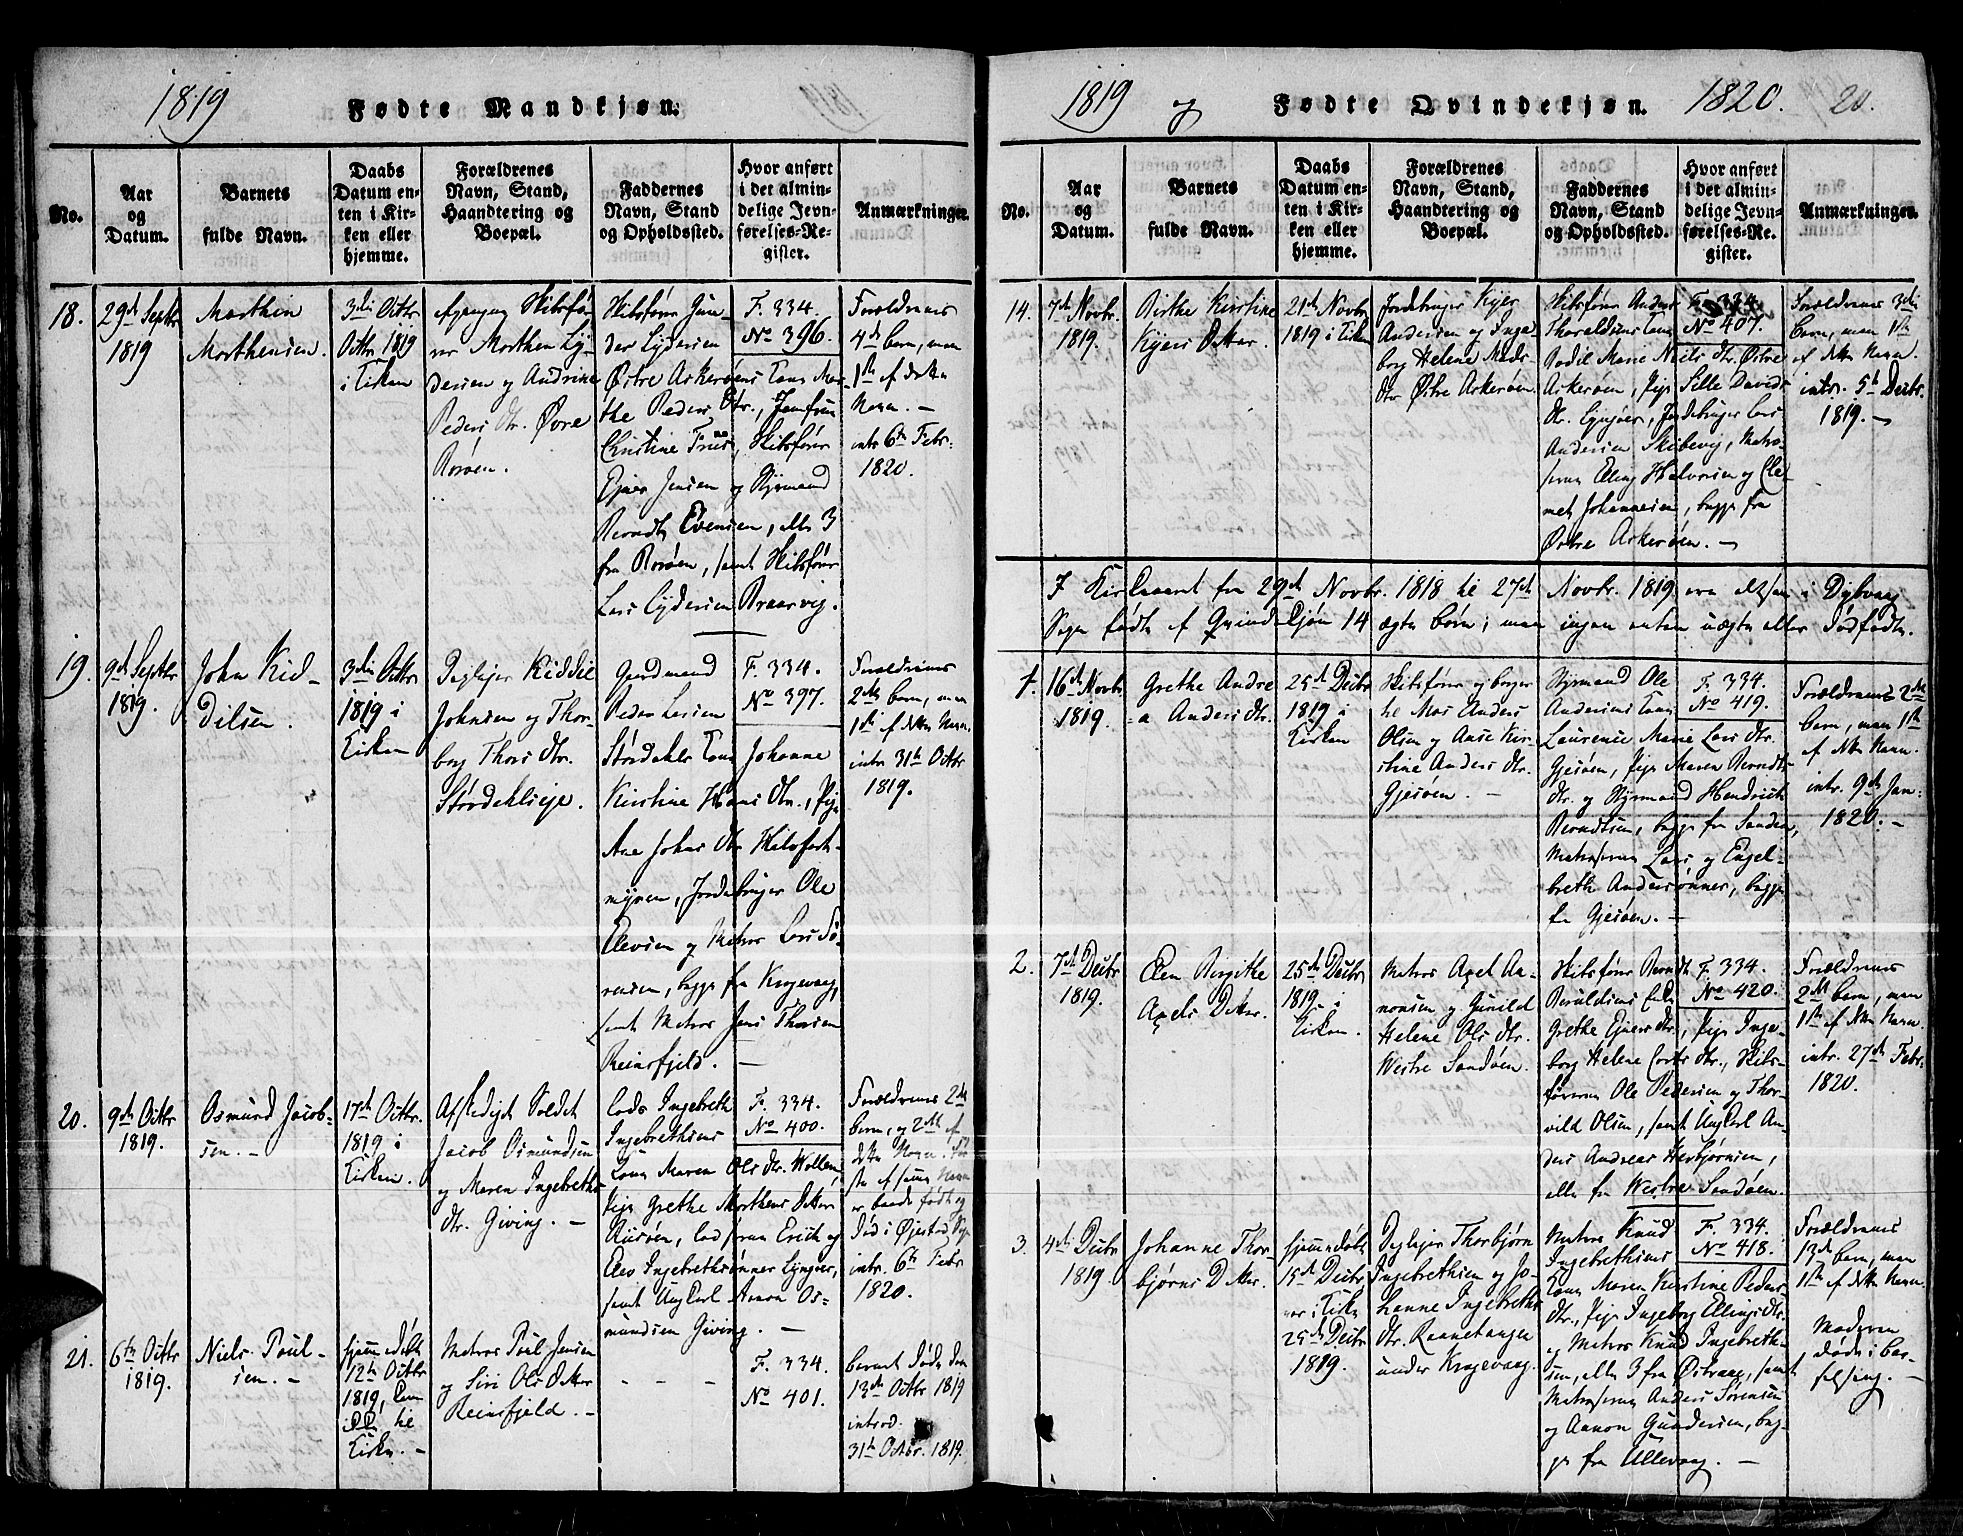 1819
Fødte Mandkjøn.
No.
Aar
og
Datum.
Barnets
fulde Navn.
Daabs
Datum en-
ten i Kir-
ken eller
hjemme.
Forældrenes
Navn, Stand,
Haandtering og
Boepæl.
Faddernes
Navn, Stand
og Opholdssted.
Hvor anført
i det almin-
delige Jevn-
førelses-Re-
gister.
Anmærkninger.
18.
29de Septbr
1819
Morthen
Morthensen.
3die Octbr.
Octbr. 1819
i Kirken
Skibsfø-
rer Morthen Ly-
dersen og Andrine
Peders Dtr. Øvre
Borøen.
Skibsfører Gun-
der Lydersen
Østre Askerøens Kone Mar-
the Peders Dtr., Jomfrue
Christine Friis, Skibsfører
Ejner Jensen og Styrmand
Berndt Evensen, alle 3
fra Borøen, samt Skibsfører
Lars Lydersen Braarvig.
F. 334.
No 396.
Forældrenes
4de barn, men
1ste af dette
Navn. —
intr. 6te Febr.
1820.
19.
9de Septbr
1819.
John Kid-
dilsen.
3die Octbr
1819 i
Kirken
Leylejer Kiddil
Johnsen og Thor-
borg Thors Dtr.
Størdahlseje.
Gaardmand
Peder Larsen
Størdahls Kone Johanne
Kirstine Hans Dtr., Pige
Ane Johns Dtr Hulsfort-
myren, Jordebruger Ole
Ellevsen og Matros Lars Sø-
rensen, begge fra Krogevaag,
samt Matros Jens Thorsen
Reinsfjeld. —
F. 334.
No 397.
Forældrenes
2det barn, men
1ste af dette Navn.
intr 31te Octbr
1819.
20.
9de Octbr
1819.
Osmund Jacob-
sen. —
17de Octbr.
1819 i
Kirken.
Afskediget Soldat
Jacob Osmundsen
og Maren Ingebreths
Dtr. Giving. —
Lods Ingebreth
Ingebrethsens
Kone Maren Ols Dtr. Wollen,
Pige Grethe Morthens Datter
Risøen, Lodserne Erich og
Elias Ingebrethsønner Lyngøer,
samt Ungkarl Aanon Os-
mundsen Giving. —
F. 334.
No 400.
Forældrenes 2det
barn, og 2det af
dette Navn. Før-
ste af samme Navn
er baade født og
død i Øjestad Sogn
intr. 6te Febr
1820.
21.
6te Octbr
1819.
Niels Poul-
sen. —
hjemmedøbt
12te Octbr
1819,
til
Kirken. —
Matros Poul Jensen
og Siri Ols Datter
Reinsfjeld. —
- - -
F. 334.
No 401.
barnet døde den
13de Octbr 1819
introd.
31te Octbr. 1819.
1819 og
Fødte Qvindekjøn. 1820.
20.
No.
Aar
og
Datum.
Barnets
fulde Navn.
Daabs
Datum en-
ten i Kir-
ken eller
hjemme.
Forældrenes
Navn, Stand,
Haandtering og
Boepæl.
Faddernes
Navn, Stand
og Opholdssted.
Hvor anført
i det almin-
delige Jevn-
førelses-Re-
gister.
Anmærkninger.
14.
7de Novbr.
1819.
Birthe Kirstine
Kjers Datter.
21de Novbr
1819 i Kirken
Jordebruger Kjer
Andersen og Inge-
borg Helene Mads
Dtr Østre Askerøen.
Skibsfører Anders
Tharaldsens Kone
Bodil Marie Niels Dtr. Østre
Askerøen, Pige Sille Davids
Dtr. Lyngøer, Jordebruger Lars
Andersen Skibevig, Matro-
serne Elling Halvorsen og Cle-
met Johannesen, begge fra
Østre Askerøen. —
F. 334.
No 407.
Forældrenes 3die
barn, men 1ste
af dette Navn.
intr. 5te Decbr.
1819. —
I Kirkeaaret fra 29de Novbr. 1818 til 27de Novbr. 1819 ere altsaa i Dybvaag
Sogn fødte af Qvindekjøn 14 ægte børn; men ingen enten uægte eller dødfødte.
1.
16de Novbr
1819.
Grethe Andre-
a Anders Dtr.
25de Decbr
1819 i
Kirken
Skibsfører og borger
til Mos Anders
Olsen og Anne Kir-
stine Anders Dtr.
Gjesøen. —
Styrmand Ole
Andersens Kone
Laurense Marie Lars Dtr.
Gjesøen, Pige Maren Berndts
Dtr. og Styrmand Hendrich
Berndtsen, begge fra Sandøen,
Matroserne Lars og Engel-
breth Andersønner, begge
fra Gjesøen. —
F. 334.
No 419.
Forældrenes 2det
barn, men 1ste
af dette Navn.
intr. 9de Jan.
1820. —
2.
7de Decbr
1819.
Elen Birgithe
Axels Datter.
25de Decbr
1819 i
Kirken.
Matros Axel Aa-
nonsen og Gunild
Helene Ols Dtr.
Westre Sandøen.
Skibsfører Berndt
Beruldsens Enke
Grethe Ejners Dtr., Pige Inge-
borg Helene Lorts Dtr., Skibs-
førerne Ole Pedersen og Thor-
vild Olsen, samt Ungkarl An-
ders Andreas Herbjørnsen,
alle fra Westre Sandøen.
F. 334.
No 420.
Forældrenes
2det barn, men
1ste af dette Navn.
intr. 27de Febr.
1820.
3.
4de Decbr
1819
Johanne Thor-
bjørns Datter.
hjemmedøbt
15de Decbr
var i Kirken
25de Decbr
1819.
Leylejer Thorbjørn
Ingebrethsen og Jo-
hanne Ingebreths
Dtr. Raanetangen
under Krogevaag.
Matros Knud
Ingebrethsens
Kone Maren Kirstine Peders
Dtr., Pige Ingeborg Ellings Dtr.
og Matros Knud Ingebreth-
sen, alle 3 fra Østvaag, samt
Matroserne Anders Sørensen
og Aanon Gundersen, beg-
ge fra Ullevaag. —
F. 334.
No 418.
Forældrenes
13de barn, men
1ste af dette Navn.
Moderen
døde i bar-
selseng. —